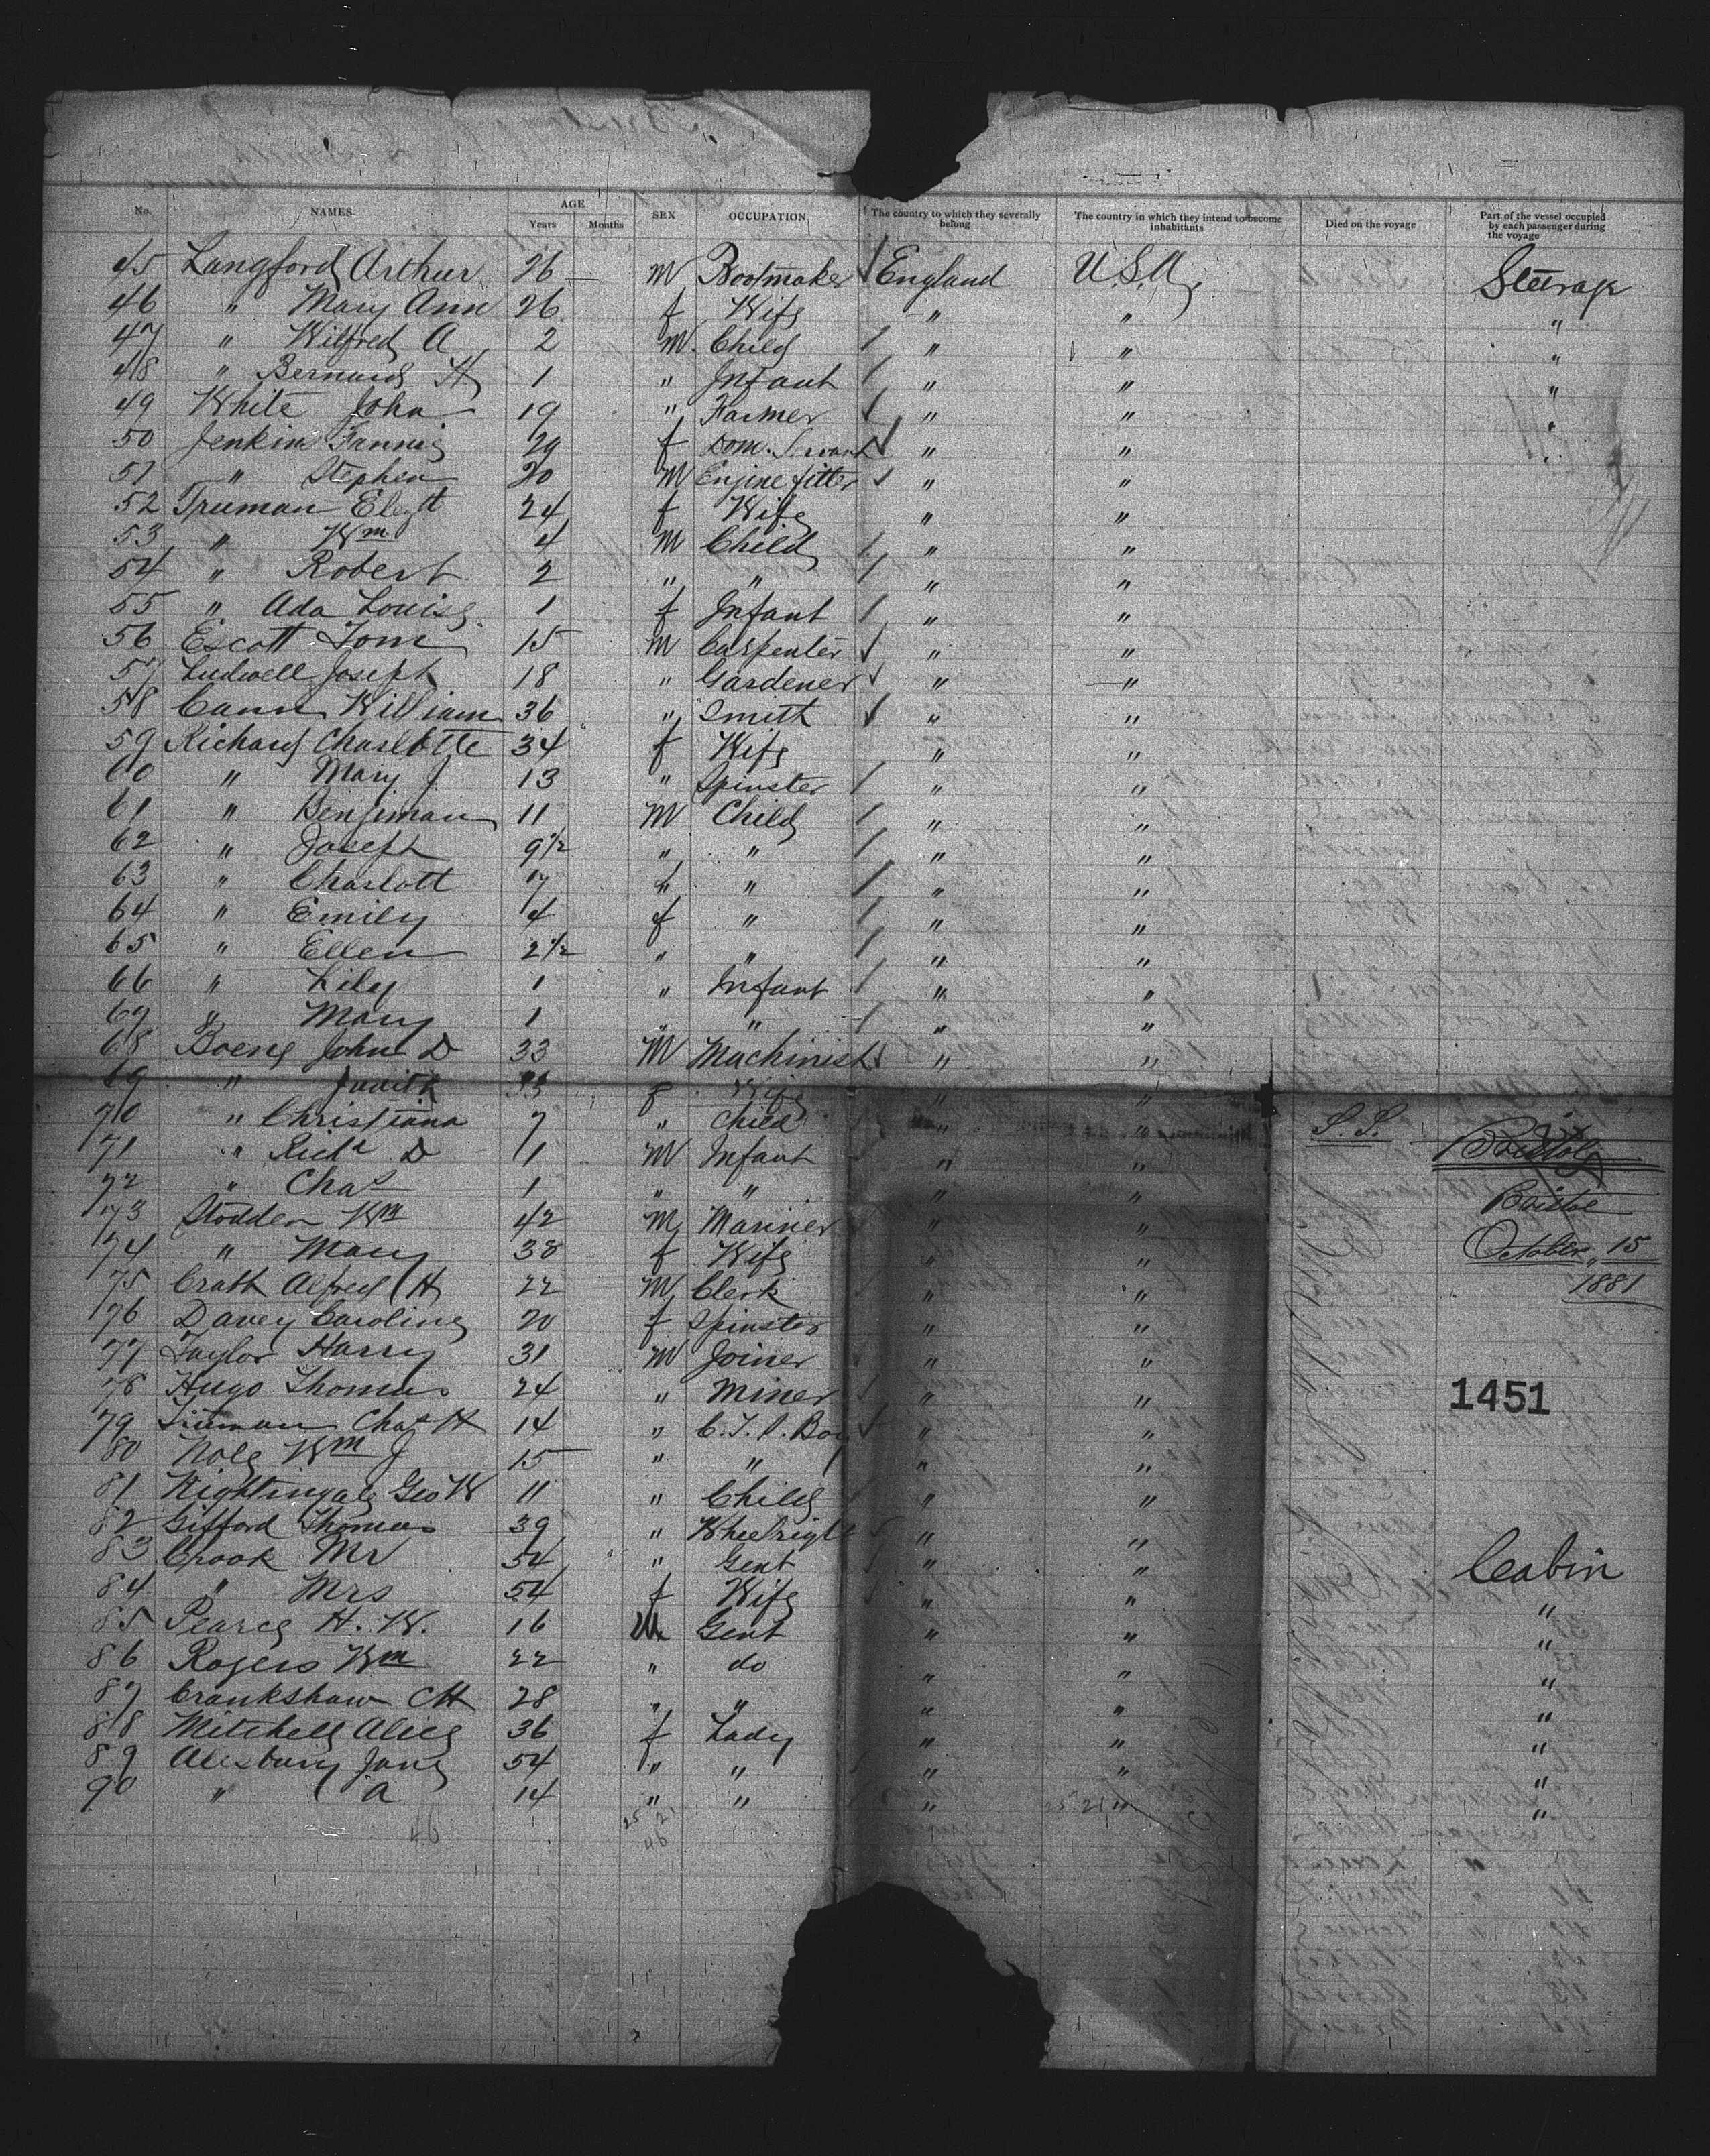 No. NAMES AGE Years Months SEX OCCUPATION The country to which they severally belong The country in which they intend to become inhabitants Died on the voyage Part of the vessel occupied by each passenger during the voyage
45 Langford Arthur 26 M Bootmaker England U.S.A. Steerage
46 " Mary Ann 26 f Wife " " "
47 " Wilfred A 2 M Child " " "
48 " Bernard H 1 " Infant " " "
49 White John 19 " Farmer " " "
50 Jenkin Fannie 29 f Dom. Servant " " "
51 " Stephen 20 M Engine fitter " "
52 Truman 24 f Wife " "
53 " Wm 4 M Child " "
54 " Robert 2 " " " "
55 " Ada Louise 1 f Infant " "
56 Escott Tom 15 M Carpenter " "
57 Ludwell Joseph 18 " Gardener " "
58 Cann William 36 " Smith " "
59 Richard Charlotte 34 f Wife " "
60 " Mary J 13 " Spinster " "
61 " Benjiman 11 M Child " "
62 " Joseph 9 1/2 " " " "
63 " Charlott 7 " " "
64 " Emily 4 f " " "
65 " Ellen 2 1/2 " " " "
66 " Lily 1 " Infant " "
67 " Mary 1 " " " "
68 John D 33 M Machinist " "
69 " Judith 33 f Wife " "
70 " Christiana 7 " Child " "
71 " Richd D 1 M Infant " "
72 " Chas 1 " " " "
73 Stodden Wm 42 M Mariner " "
74 " Mary 38 f Wife " "
75 Alfred H 22 M Clerk " "
76 Davey Caroline 20 f Spinster " "
77 Taylor Harry 31 M Joiner " "
78 Hugo Thomas 24 " Miner " "
79 Truman Chas H 14 " Boy " "
80 Wm J 15 " " " "
81 Nightingale Geo W 11 " Child " "
82 Gifford Thomas 39 " Wheelright " "
83 Crook Mr 54 " Gent " " Cabin
84 " Mrs 54 f Wife " " "
85 Pearce H. W. 16 M Gent " " "
86 Rogers Wm 22 " do " " "
87 Crankshaw CH 28 " " " " "
88 Mitchell Alice 36 f Lady " " "
89 Alesbury Jane 54 " " " " "
90 " A 14 " " " " "
25 21
46
46
25 21
S.S.
Bristol
October 15
1881
1451